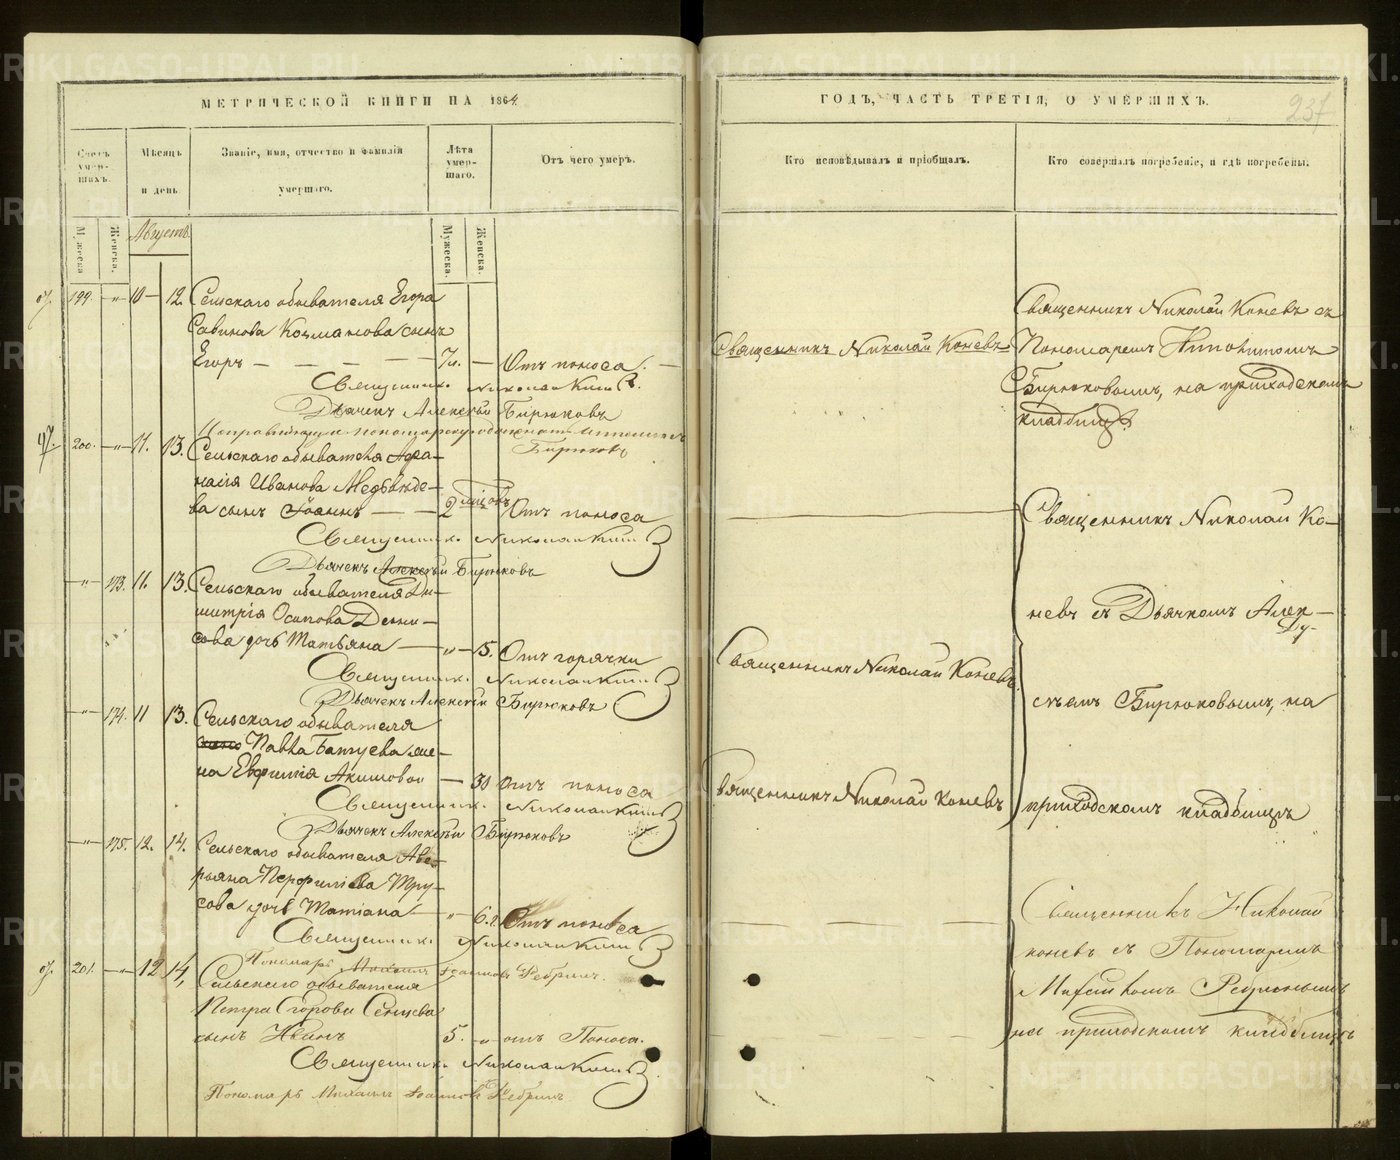 МЕТРИЧЕСКОЙ КНИГИ НА 1864
Счетъ умер-шихъ.
Мѣсяцъ и день
Званіе, имя, отчество и фамилія умершаго.
Лѣта умер-шаго.
Отъ чего умеръ.
Мужеска
Женска.
Августъ.
Мужеска.
Женска.
199. " 10 — 12. Сельскаго обывателя Егора
Савинова Козманова сынъ
Егоръ — — — — — Отъ поноса. —
Священникъ Николай Коневъ.
Дьячекъ Алексѣй Бирюковъ
Бирюковъ
200. — " — 11. 13. Сельскаго обывателя Афа-
насія Иванова Медвѣде-
ва сынъ Іоаннъ — — 2 мѣсяцовъ Отъ поноса
Священникъ Николай Коневъ
Дьячекъ Алексѣй Бирюковъ
— " — 173. 11. 13. Сельскаго обывателя Ди-
митрія Осипова Дени-
сова дочь Татьяна — " — 5. Отъ горячки
Священникъ Николай Коневъ
Дьячекъ Алексѣй Бирюковъ
— " — 174. 11 13. Сельскаго обывателя
Павла Батуева же-
на Евфимія Акимова — 30 Отъ поноса
Священникъ Николай Коневъ
Дьячекъ Алексѣй Бирюковъ
— " — 175. 12. 14. Сельскаго обывателя Аве-
рьяна Перфилева Тру-
сова дочь Татіана — " — Отъ поноса
Священникъ Николай Коневъ
Пономарь Михаилъ Іоанновъ Ребринъ.
201. — " — 12 14, Сельскаго обывателя
Петра Егорова
сынъ Иванъ 5. — " — отъ Поноса.
Священникъ Николай Коневъ
Пономарь Михаилъ Іоанновъ Ребринъ
ГОДЪ, ЧАСТЬ ТРЕТІЯ, О УМЕРШИХЪ.
237
Кто исповѣдывалъ и пріобщалъ.
Кто совершалъ погребеніе, и гдѣ погребены.
Священникъ Николай Коневъ
Священникъ Николай Коневъ съ
Пономаремъ Ипполитомъ
Бирюковымъ, на приходскомъ
кладбищѣ.
Священникъ Николай Ко-
невъ съ Дьячкомъ Алек-
Священникъ Николай Коневъ.
сѣемъ Бирюковымъ, на
Священникъ Николай Коневъ
приходскомъ кладбищѣ
Священникъ Николай
Коневъ съ Пономаремъ
Ребринымъ
на приходскомъ кладбищѣ
METRIKI.GASO-URAL.RU